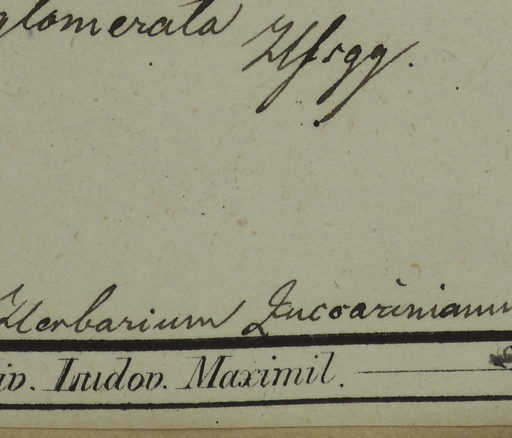 glomerata Hffsgg.
Herbarium Zuccarinianum
iv. Ludov. Maximil.